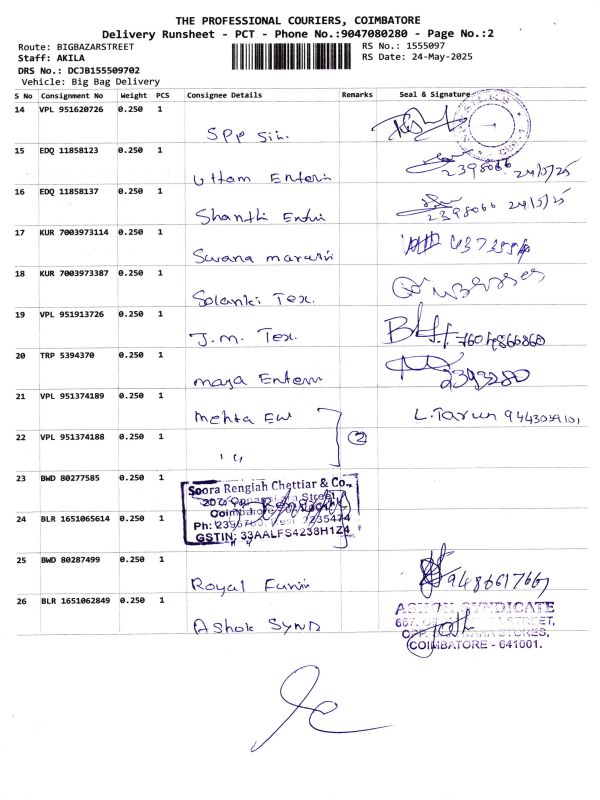 THE PROFESSIONAL COURIERS, COIMBATORE
Delivery Runsheet - PCT - Phone No.:9047080280 - Page No.:2
Route: BIGBAZARSTREET
RS No.: 1555097
Staff: AKILA
RS Date: 24-May-2025
DRS No.: DCJB155509702
Vehicle: Big Bag Delivery
S No Consignment No Weight PCS Consignee Details Remarks Seal & Signature
14 VPL 951620726 0.250 1
SPP
15 EDQ 11858123 0.250 1
Uttam 2398066 24/5/25
16 EDQ 11858137 0.250 1
Shanthi 2398066 24/5/25
17 KUR 7003973114 0.250 1
Swana
18 KUR 7003973387 0.250 1
Solanki Tex.
19 VPL 951913726 0.250 1
J.m. Tex.
20 TRP 5394370 0.250 1
maya 2393280
21 VPL 951374189 0.250 1
mehta L.Tarun 9443039101
22 VPL 951374188 0.250 1
2
23 BWD 80277585 0.250 1
Soora Rengiah Chettiar & Co.,
Street
24 BLR 1651065614 0.250 1
GSTIN: 33AALFS4238H1Z4
25 BWD 80287499 0.250 1
Royal
26 BLR 1651062849 0.250 1
Ashok Synd
ASHOK SYNDICATE
STREET,
STORES,
COIMBATORE - 641001.